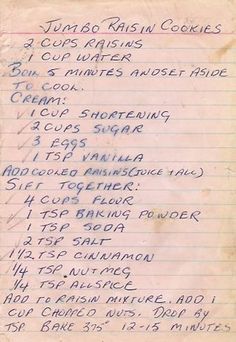 JUMBO RAISIN COOKIES
2 CUPS RAISINS
1 CUP WATER
BOIL 5 MINUTES AND SET ASIDE
TO COOL.
CREAM:
1 CUP SHORTENING
2 CUPS SUGAR
3 EGGS
1 TSP VANILLA
ADD COOLED RAISINS (JUICE & ALL)
SIFT TOGETHER:
4 CUPS FLOUR
1 TSP BAKING POWDER
1 TSP SODA
2 TSP SALT
1 1/2 TSP CINNAMON
1/4 TSP NUTMEG
1/4 TSP ALLSPICE
ADD TO RAISIN MIXTURE. ADD 1
CUP CHOPPED NUTS. DROP BY
TSP. BAKE 375° 12-15 MINUTES